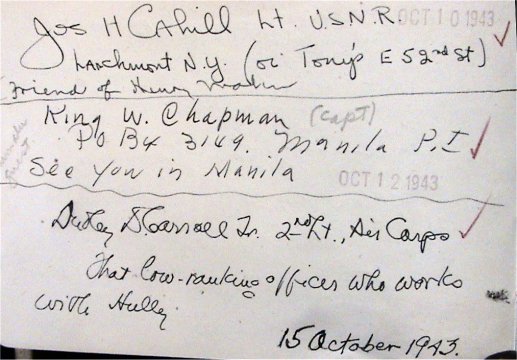 Jos H Cahill Lt. U.S.N.R. OCT 10 1943
Larchmont N.Y. (or Tony's E 52nd St)
Friend of Henry
King W. Chapman (Capt)
PO Bx 3149. Manila P.I
See You in Manila
OCT 12 1943
Jr. 2nd Lt., Air Corps
That low-ranking officer who works
with Hulley.
15 October 1943.